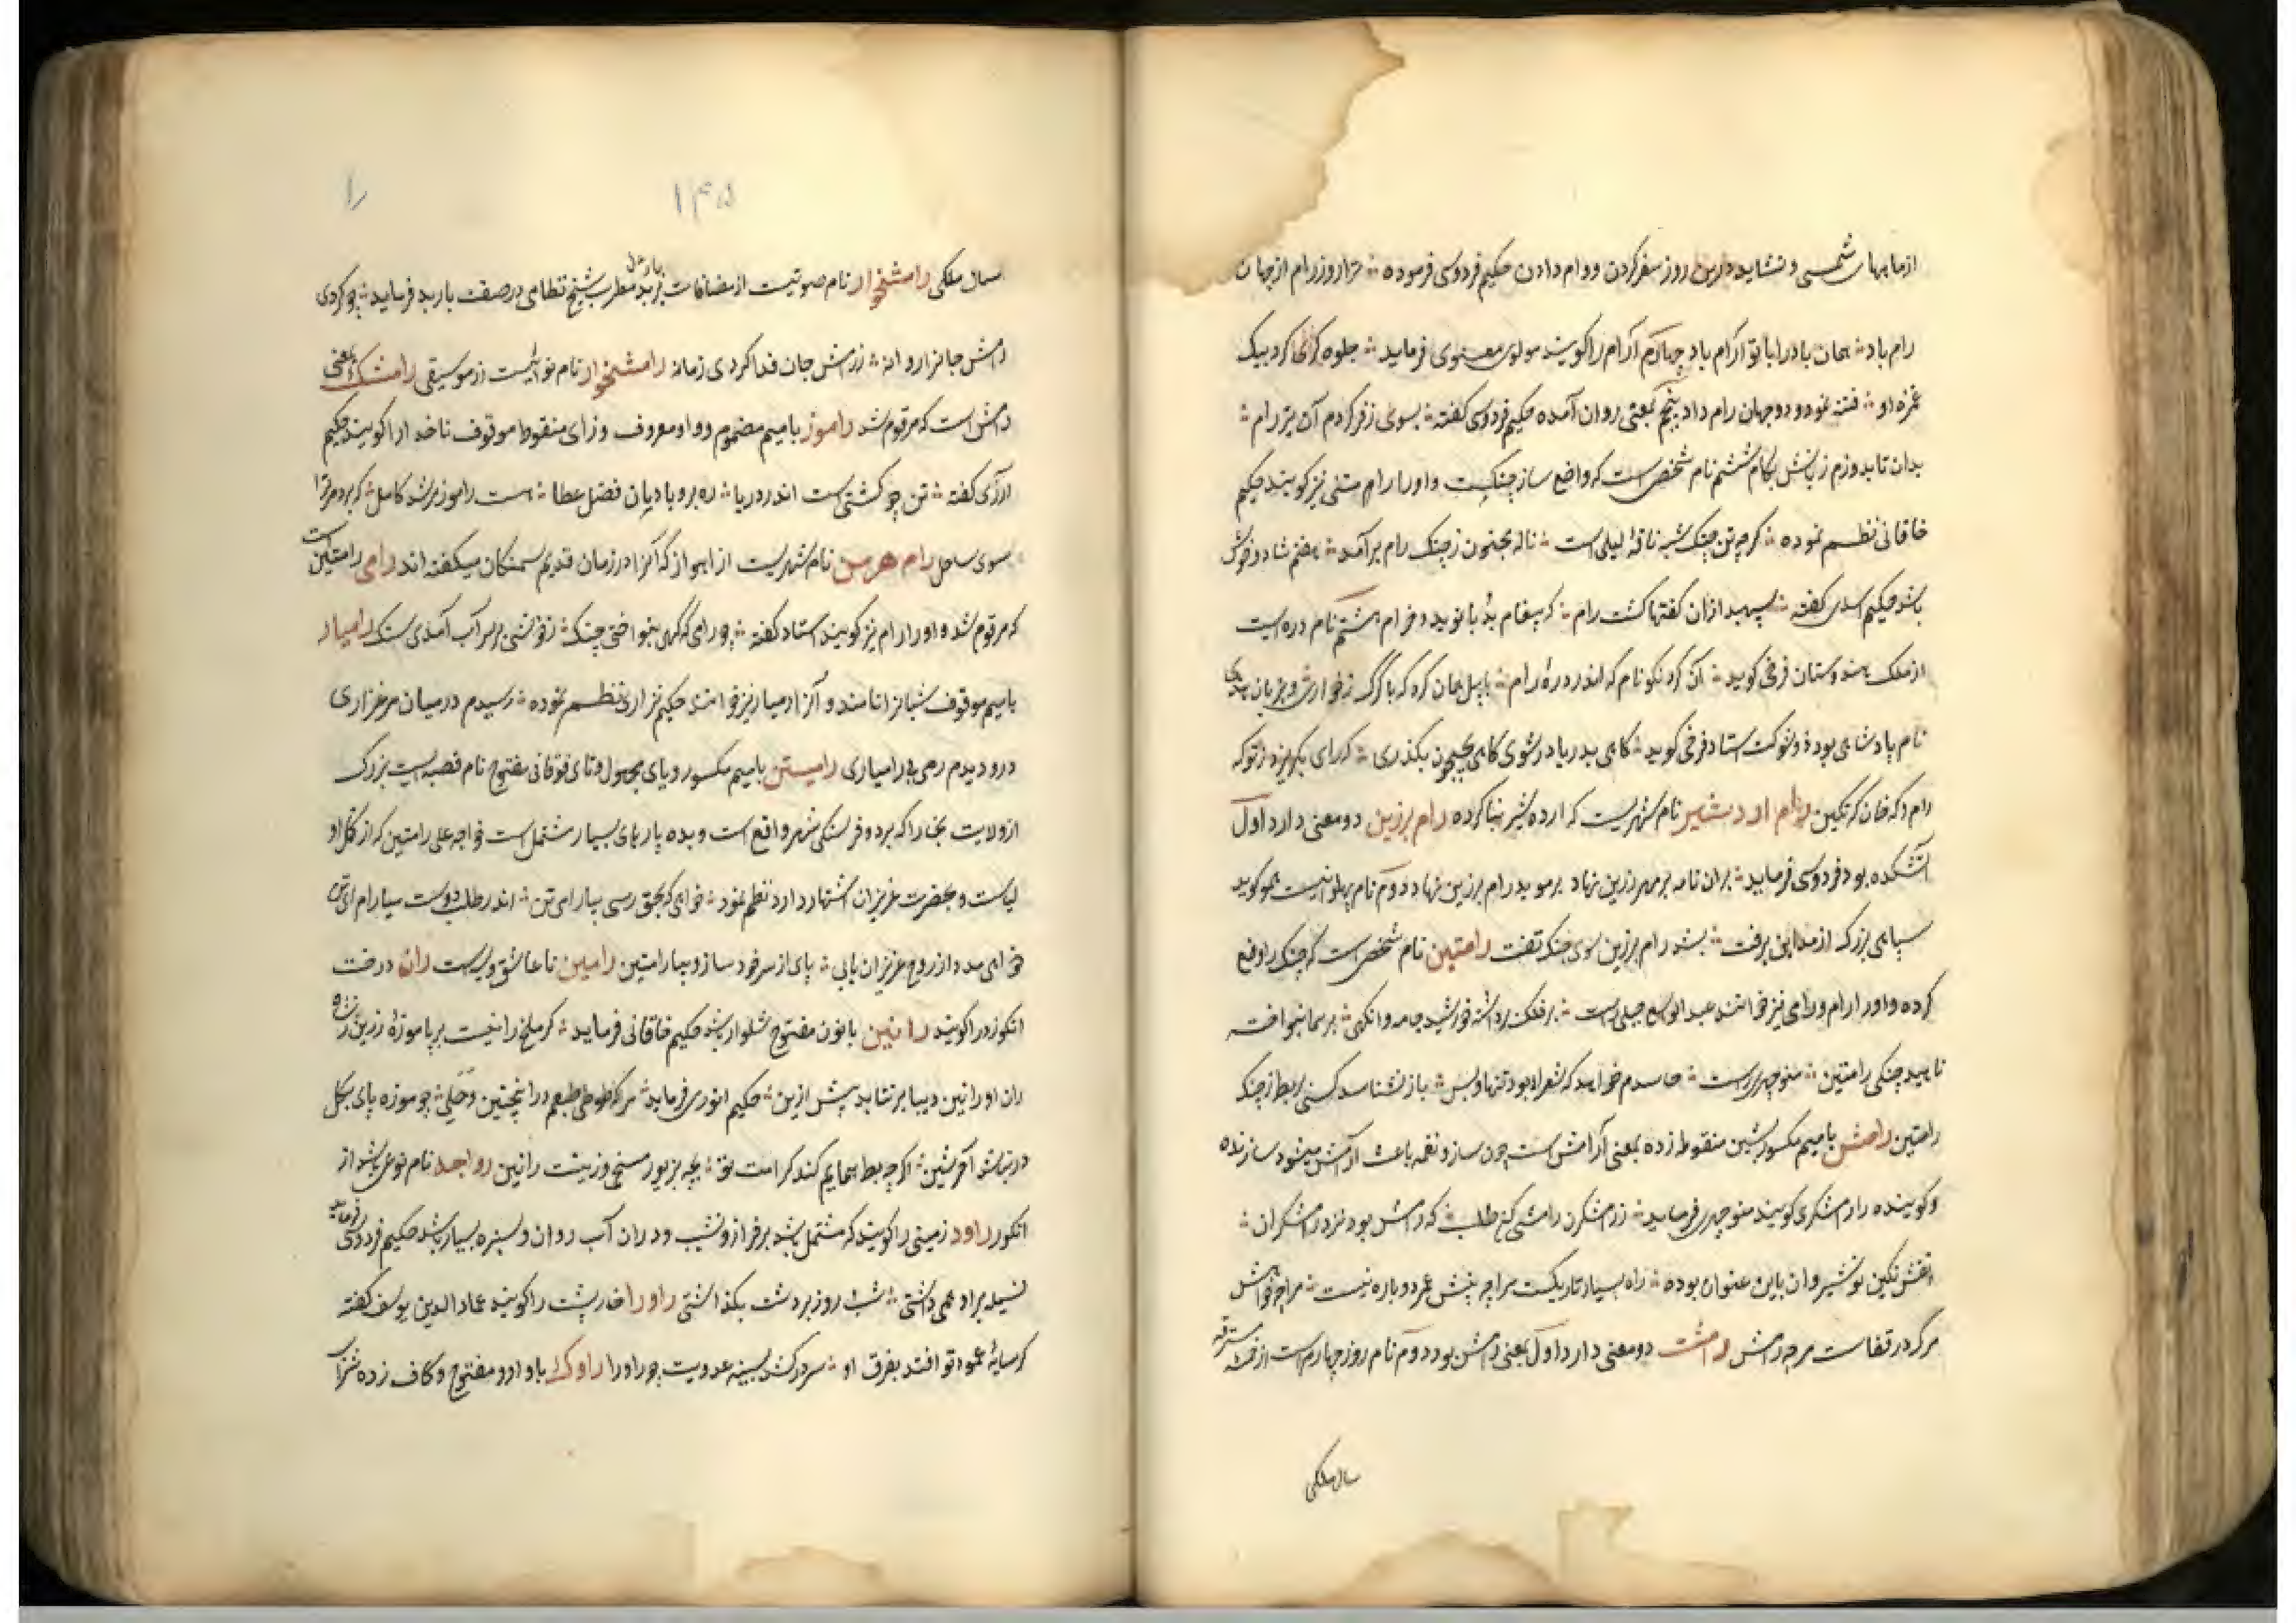 از ماههای شمسی و نشاید درین روز سفر کردن و وام دادن حکیم فردوسی فرموده هزار روز رام از جهان
رام باد همان بادرا با تو آرام باد چهارم آرام را گویند مولوی معنوی فرماید جلوه کرد بیک
غمزه او فتنه نمود و دو جهان رام داد پنجم بمعنی روان آمده حکیم فردوسی گفته بسوی زفر کردم آن تیر رام
بدان تا بدوزم زبانش بکام ششم نام شخصی است که واضع ساز چنگست و او را رام متنی نیز گویند حکیم
خاقانی نظم نموده گرچه تن چنگ شبه ناقهٔ لیلی است ناله مجنون ز چنگ رام برآمد هفتم شاد و خوش
باشد حکیم اسدی گفته سپهبد ازان گفتها گشت رام که پیغام بُد با نوید و خرام هشتم نام دره ایست
از ملک هندوستان فرخی گوید آن کرد نکو نام که اندر درهٔ رام با پیل همان کرد که با گرگ ز خواری
نام پادشاهی بوده و شوکت استاد فرخی گوید گاهی بدریا در شوی گاهی بجیحون بگذری که رای بگریزد ز تو که
رام و که خان که تکین رام اردشیر نام شهریست که اردشیر بنا کرده رام برزین دو معنی دارد اول
آتشکده بود فردوسی فرماید بران نامه بر مهر زرین نهاد بر موبد رام برزین نهاد دوم نام پهلوانیست هم گوید
سپاهی بزرگ از مداین برفت بشد رام برزین سوی جنگ تفت رامتین نام شخصی است که چنگ را وضع
کرده و او را رام و رامی نیز خوانند عبد الواسع جبلی راست بر فلک برداشته خورشید جام وانگهی بر سما بنواخته
ناهید چنگی رامتین منوچهری راست حاسدم خواهد که شعر او بود تنها و بس باز نشناسد کسی بربط ز چنگ
رامتین رامش با میم مکسور بشین منقوطه زده بمعنی آرامش است چون ساز و نغمه باعث آرامش میشود سازنده
و گوینده را رامشگری گویند منوچهری فرماید ز رامشگران رامشی کن طلب که رامش بود نزد رامشگران
نقش نگین نوشیروان باین عنوان بوده راه بسیار تاریکست مرا چه بینش عمر دوباره نیست مرا چه خواهش
مرگ در قفاست مرا چه رامش رامشت دو معنی دارد اول بمعنی رامش بود دوم نام روز چهارم است از خمسهٔ مسترقه
سال ملکی
را
۱۴۵
سال ملکی رامشخوار نام صوتیست از مضافات باربد مطرب شیخ نظامی در صفت باربد فرماید چو کردی
رامش جانرا روانه ز رامش جان فدا کردی زمانه رامشخوار نام نوائیست از موسیقی رامشک بمعنی
رامش است که مرقوم شد راموز با میم مضموم و واو معروف و زای منقوط موقوف ناخدا را گویند حکیم
آذری گفته تن چو کشتی است اندر دریا ره برو بادبان فضل عطا هست راموز مرشد کامل که برد مر ترا
سوی ساحل رام هرمز نام شهریست از اهواز که آنرا در زمان قدیم سمنگان میگفته اند رامی رامتین است
که مرقوم شد و او را رام نیز گویند استاد گفته چو رامی گه گهی بنواختی چنگ ز خوشی بر سر آب آمدی سنگ رامیار
با میم موقوف شبانرا نامند و آنرا رمیار نیز خوانند حکیم نزاری نظم نموده رسیدم در میان مرغزاری
درو دیدم رمی بی رامیاری رامیتن با میم مکسور و یای مجهول و تای فوقانی مفتوح نام قصبه ایست بزرگ
از ولایت بخارا که بر دو فرسنگی شهر واقع است و بده پارهای بسیار مشتمل است خواجه علی رامتین که از کُمّل اولیاست
و بحضرت عزیزان اشتهار دارد نظم نمود خواهی که بحق رسی بیارام ای تن اندر طلب دوست بیارام ای تن
خواهی مدد از روح عزیزان یابی پای از سر خود ساز و بیا رامتین رامین نام عاشق ویس است ران درخت
انگوزد را گویند رانین با نون مفتوح شلوار باشد حکیم خاقانی فرماید گر ملخ را نیست بر پا موزهٔ زرین
ران او رانین دیبا برنتابد پیش ازین حکیم انوری فرماید
در باشد آخرشین اگر چه بط رانین رواجه نام نوعی باشد از
انگور راود زمینی را گویند که مشتمل باشد بر فراز و نشیب و در آن آب روان و سبزه بسیار باشد حکیم فردوسی فرماید
فسیله براود همی داشتی شب و روز بر دشت بگذاشتی راورا خارپشت را گویند عماد الدین یوسف گفته
گر سایهٔ عمود تو افتد بفرق او سر درکشد بسینه عدویت چو راورا راوک با واو مفتوح و کاف زده